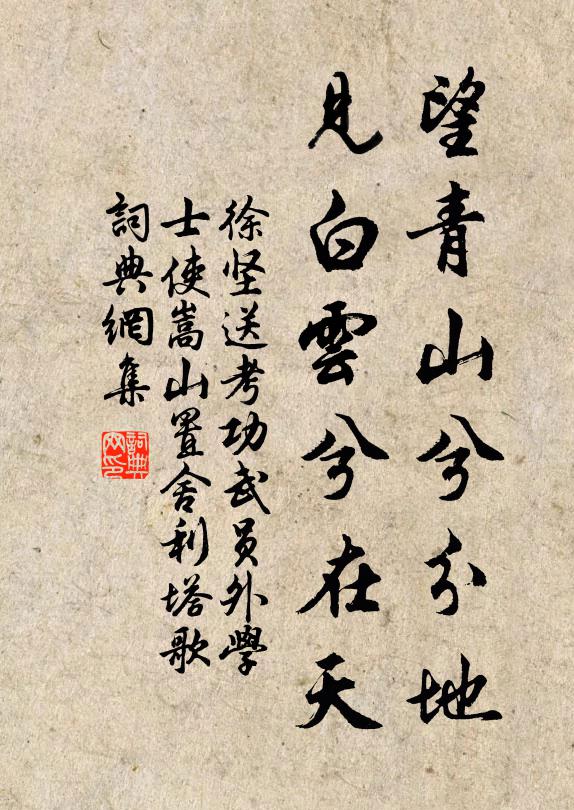 望青山兮分地
見白雲兮在天
徐坚送考功武员外學
士使嵩山置舍利塔歌
詞典網集
詞典
网印